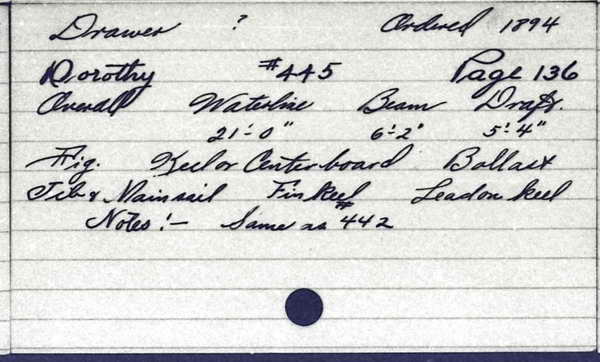 Drawer ? Ordered 1894
Dorothy #445 Page 136
Overall Waterline Beam Draft.
21'-0" 6'-2" 5'-4"
Fig. Keel or Centerboard Ballast
Jib & Mainsail Fin Keel Lead on keel
Notes:- Same as #442